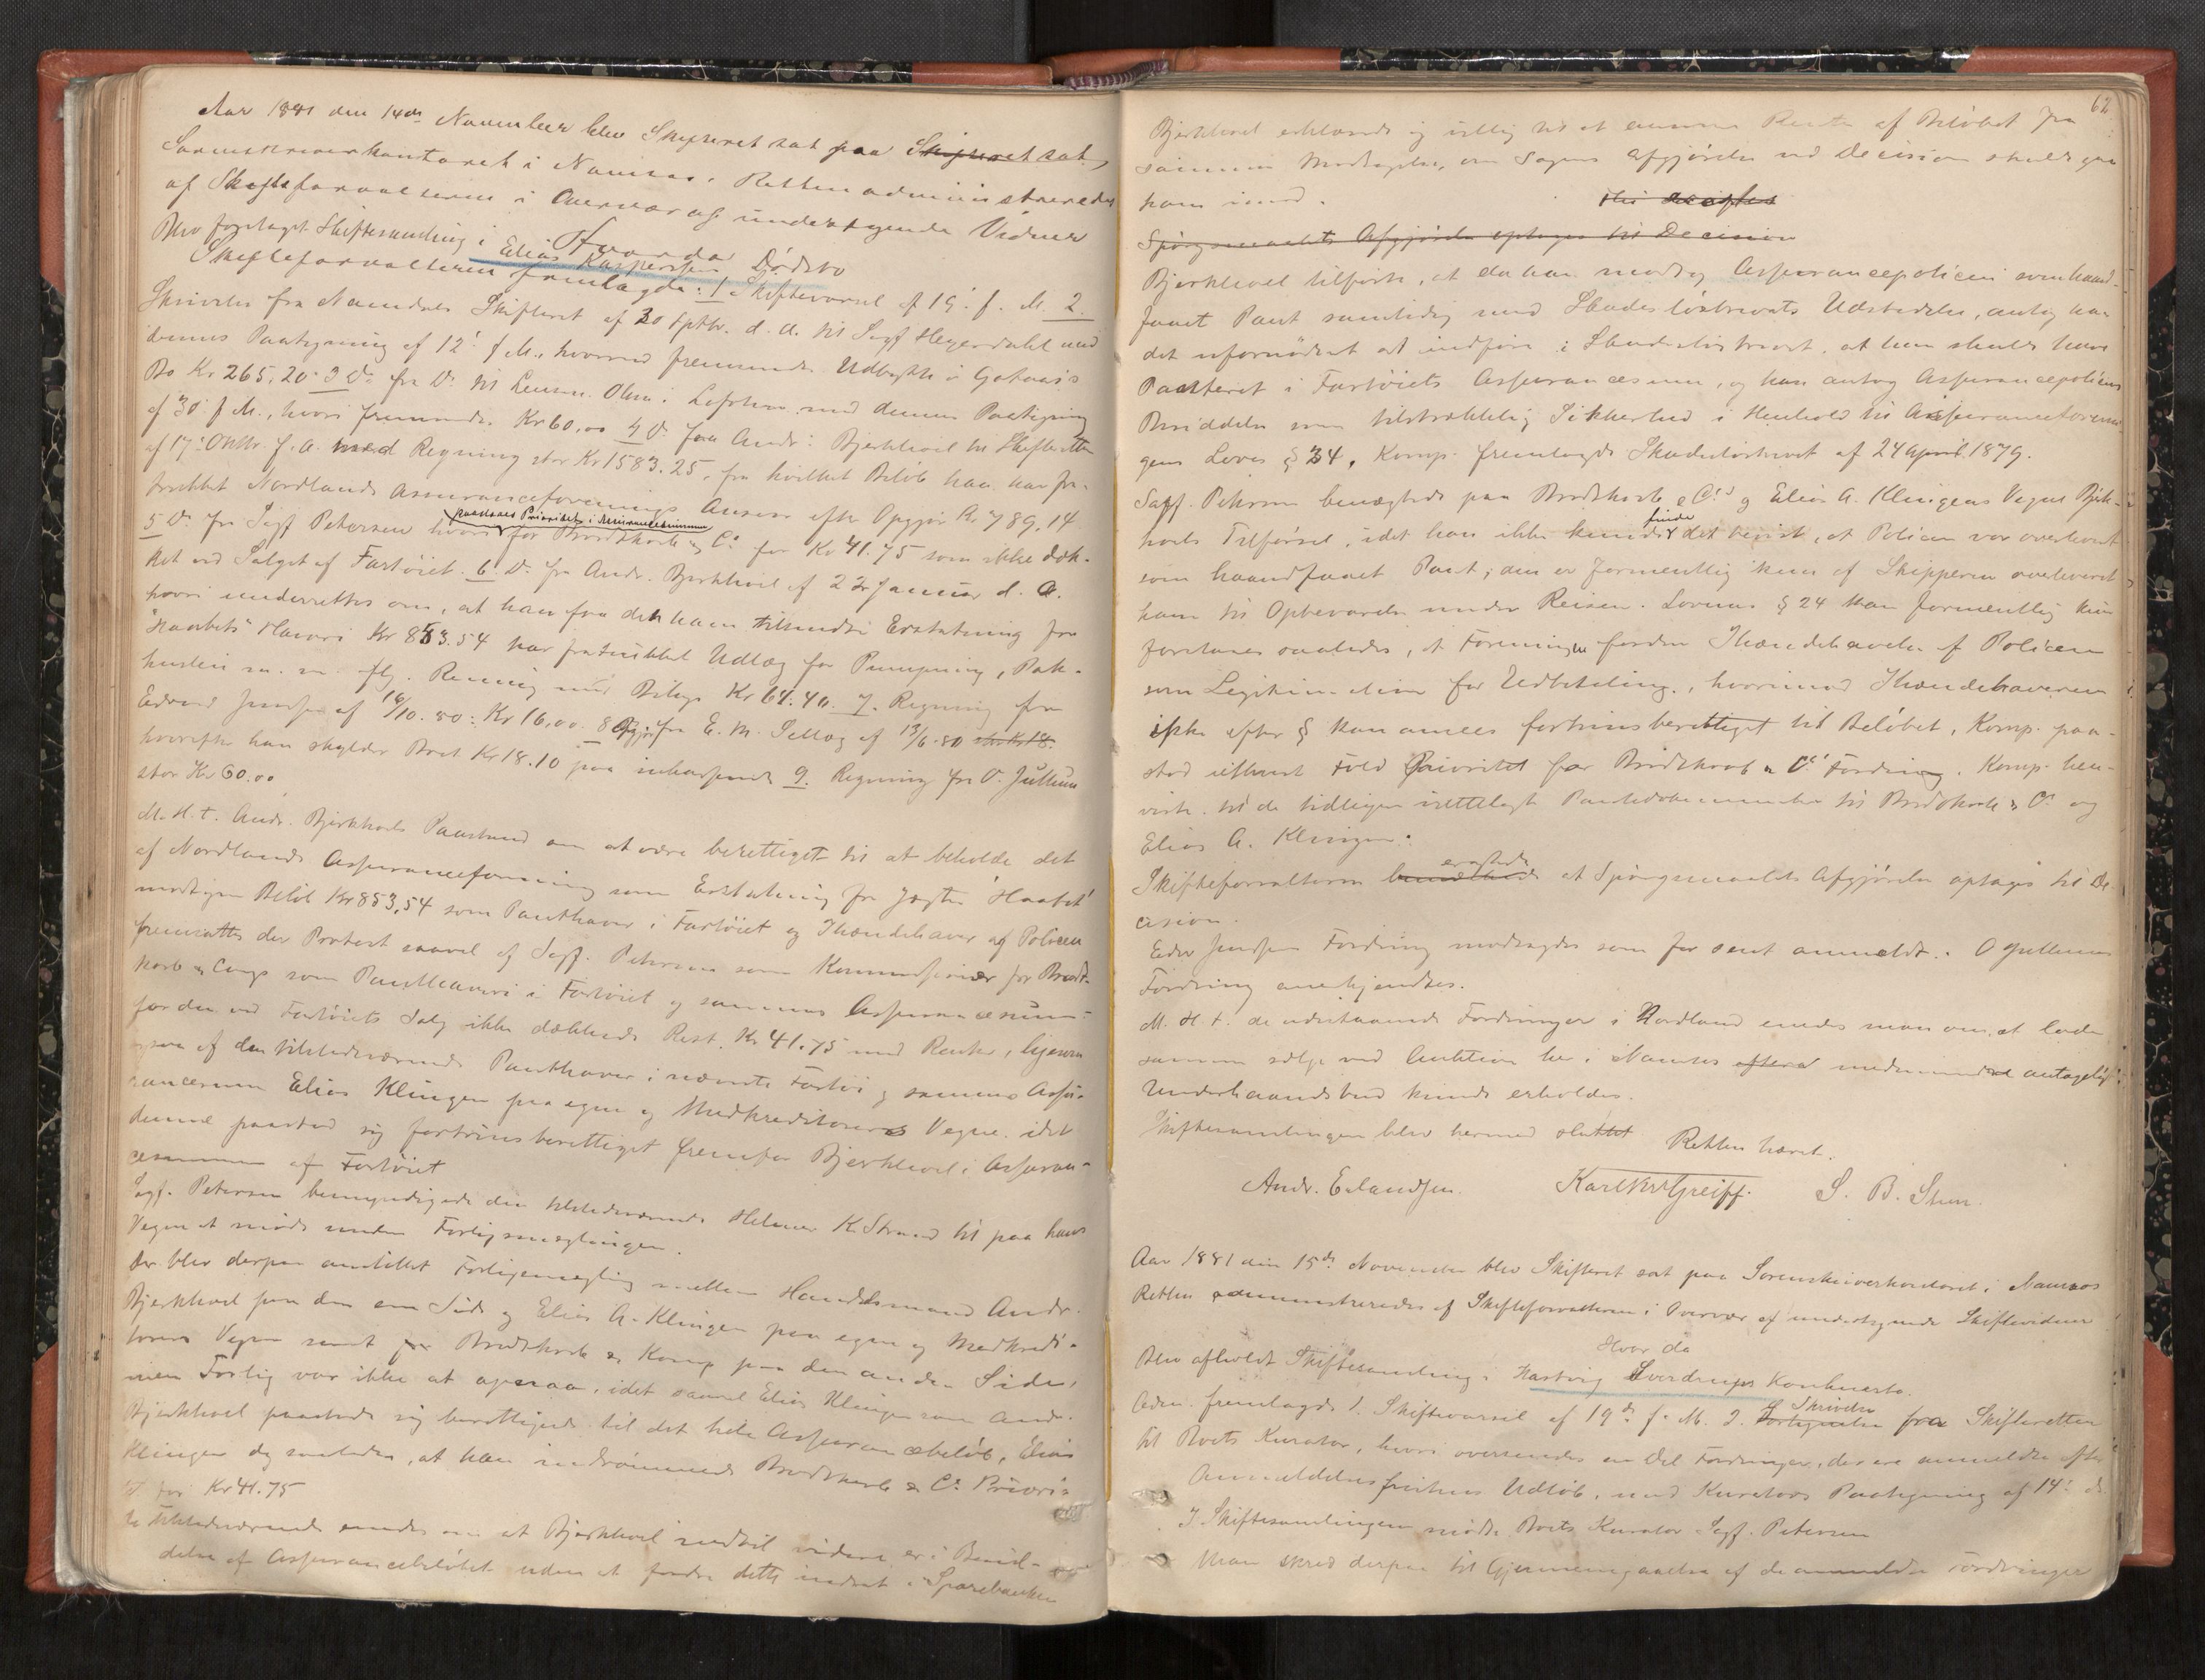 Aar 1881 den 14de November blev Skifteret sat paa Skifteret sat
Sorenskriverkontoret i Namsos. Retten administreredes
af Skifteforvalteren i Overvær af undertegnede Vidner
Hvorda
Blev foretaget Skiftesamling i Elias Kaspersens Dødsbo
Skifteforvalteren fremlagde: 1. Skiftevarsel af 19. f. M. 2.
Skrivelse fra Namdals Skifteret af 30 Septbr. d. A. til Sagf Heyerdahl med
dennes Paategning af 12. f. M., hvorved fremsendes Udbytte i Gotaas's
Bo Kr 265,20. 3 Do fra Do til Lensm. Olsen i Lofoten med dennes Paategning
af 30. f M., hvori fremsendes Kr 60,00 4 Do fra Andr. Bjerkhoel til Skifteretten
af 17. Oktbr. f. A. med Regning stor Kr 1583.25, fra hvilket Beløb han har fra-
trukket Nordlands Assuranceforenings Ansvar efter Opgjør Kr 789,14
5 Do fra Sagf Petersen hvori for Brodtkorb & Co for Kr 41.75 som ikke dæk-
paastaaes Prioritet i Assurancesummen
ket ved Salget af Fartøiet. 6. Do fra Andr. Bjerkhoel af 22 Januar d. A.
hvori underrettes om, at han fra den ham tilsendte Erstatning for
"Haabets" Havari Kr 853.54 har fratrukket Udlæg for Pumpning, Pak-
husleie m. m. flg. Regning med Bilag Kr 64.40. 7. Regning fra
Edvard Jensen af 16/10. 80: Kr 16,00. 8 Opgjør fra E. M. Sellæg af 13/6. 80 stor Kr 18.
hvorefter han skylder Boet Kr 18.10 paa inkasserende 9. Regning fra O. Jullum
stor Kr 60.00
M. H. t. Andr. Bjerkhoels Paastand om at være berettiget til at beholde det
af Nordlands Assuranceforening som Erstatning for Jagten "Haabet"
modtagne Beløb Kr 853,54 som Panthaver i Fartøiet og Ihændehaver af Policen
fremsattes der Protest saavel af Sagf. Petersen som Kommissionær for Brodt-
korb & Comp som Panthavere i Fartøiet og sammes Assurancesum
for den ved Fartøiets Salg ikke dækkede Rest Kr 41.75 med Renter, ligesom
ogsaa af den tilstedeværende Panthaver i nævnte Fartøi og sammes Assu-
rancesum Elias Klingen paa egne og Medkreditorers Vegne, idet
denne paastod sig fortrinsberettiget fremfor Bjerkhoel i Assuran-
cesummen af Fartøiet
Sagf. Petersen bemyndigede den tilstedeværende Helmer K. Strand til paa hans
Vegne at møde under Forligsmæglingen.
Der blev derpaa anstillet Forligsmægling mellem Handelsmand Andr.
Bjerkhoel paa den ene Side og Elias A. Klingen paa egne og Medkredi-
torers Vegne samt for Brodtkorb & Komp paa den anden Side,
men Forlig var ikke at opnaa, idet saavel Elias Klingen som Andr.
Bjerkhoel paastode sig berettigede til det hele Assurancebeløb, Elias
Klingen dog saaledes, at han indrømmede Brodtkorb & Co Priori-
tet for Kr 41.75
De Tilstedeværende enedes om at Bjerkhoel indtil videre er i Besid-
delse af Assurancebeløbet uden at fordre dette indsat i Sparebanken
62
Bjerkhoel erklærede sig villig til at erlægge Rente af Beløbet fra
sammes Modtagelse, om Sagens Afgjørelse ved Decision skulde gaa
ham imod.
Spørgsmaalets Afgjørelse optages til Decision
Bjerkhoel tilførte, at da han modtog Assurancepolicen som haand-
faaet Pant samtidig med Skadesløsbrevets Udstedelse, antog han
det ufornødent at indføre i Skadesløsbrevet, at han skulde have
Panteret i Fartøiets Assurancesum, og han antog Assurancepolicens
Besiddelse som tilstrækkelig Sikkerhed i Henhold til Assuranceforenin-
gens Loves § 34. Komp. fremlagde Skadesløsbrevet af 24 April 1879.
Sagf. Petersen benægtede paa Brodtkorb & Co's og Elias A. Klingens Vegne Bjerk-
hoels Tilførsel, idet han ikke kunde finde det bevist, at Policen var overleveret
som haandfaaet Pant; den er formentlig kun af Skipperen overleveret
ham til Opbevarelse under Reisen. Lovenes § 24 kan formentlig kun
forstaaes saaledes, at Foreningen fordrer Ihændehavelse af Policen
som Legitimation for Udbetaling, hvorimod Ihændehaveren
ikke efter § kan ansees fortrinsberettiget til Beløbet, Komp. paa-
stod ialfald Fuld Prioritet for Brodtkorb & Co's Fordring. Komp. hen-
viste til de tidligere irettelagte Pantedokumenter til Brodtkorb & Co og
Elias A. Klingen.
Skifteforvalteren bemærkede eragtede at Spørgsmaalets Afgjørelse optages til De-
cision.
Edv. Jensens Fordring modsagdes som for sent anmeldt. O Jullums
Fordring anerkjendtes.
M. H. t. de udestaaende Fordringer i Nordland enedes man om at lade
samme sælge ved Auktion her i Namsos medmindre antageligt
Underhaandsbud kunde erholdes.
Skiftesamlingen blev hermed sluttet Retten hævet.
Andr. Erlandsen. Karl Greiff. S. B. Steen.
Aar 1881 den 15de November blev Skifteret sat paa Sorenskriverkontoret i Namsos
Retten administreredes af Skifteforvalteren i Overvær af undertegnede Skiftevidner
Hvor da
Blev afholdt Skiftesamling i Hartvig Sverdrups Konkursbo.
Adm. fremlagde 1. Skiftevarsel af 19de f. M. 2. Fortegnelse Skrivelse fra Skifteretten
til Boets Kurator, hvori oversendes en Del Fordringer, der ere anmeldte efter
Anmeldelsesfristens Udløb, med Kurators Paategning af 14. ds.
I Skiftesamlingen mødte Boets Kurator Sagf. Petersen
Man skred derpaa til Gjennemgaaelse af de anmeldte Fordringer